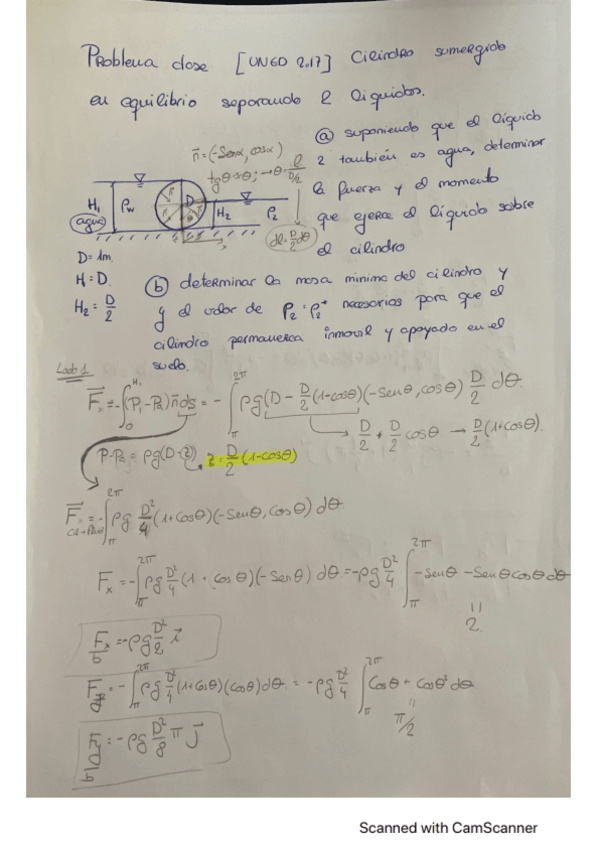 Problema clase [UNED 2.17] Cilindro sumergido
en equilibrio separando 2 líquidos.
ⓐ suponiendo que el líquido
2 también es agua, determinar
la fuerza y el momento
que ejerce el líquido sobre
el cilindro
n⃗ = (-senα, cosα)
tgθ≈θ; →θ = l/(D/2)
dl = D/2 dθ
H₁ ρw D H₂ ρ₂
agua
D = 1m.
H = D
H₂ = D/2
ⓑ determinar la masa mínima del cilindro y
y el valor de ρ₂ = ρ₂* necesarios para que el
cilindro permanezca inmovil y apoyado en el
suelo.
Lado 1
F⃗ = -∫₀^H₁ (P₁-Pa) n⃗ ds = -∫_π^2π ρg(D - D/2 (1-cosθ)(-senθ, cosθ) D/2 dθ
D/2 + D/2 cosθ → D/2 (1+cosθ).
P-Pa = ρg(D-z) z = D/2 (1-cosθ)
∫_π^2π ρg D²/4 (1+cosθ)(-senθ, cosθ) dθ
Fx = -∫_π^2π ρg D²/4 (1 + cosθ)(-senθ) dθ = -ρg D²/4 ∫_π^2π -senθ - senθcosθ dθ
= 2
Fx/b = -ρg D²/2 i⃗
= -∫_π^2π ρg D²/4 (1+cosθ)(cosθ)dθ = -ρg D²/4 ∫_π^2π cosθ + cosθ² dθ
= π/2
Fy/b = -ρg D²/8 π j⃗
Scanned with CamScanner